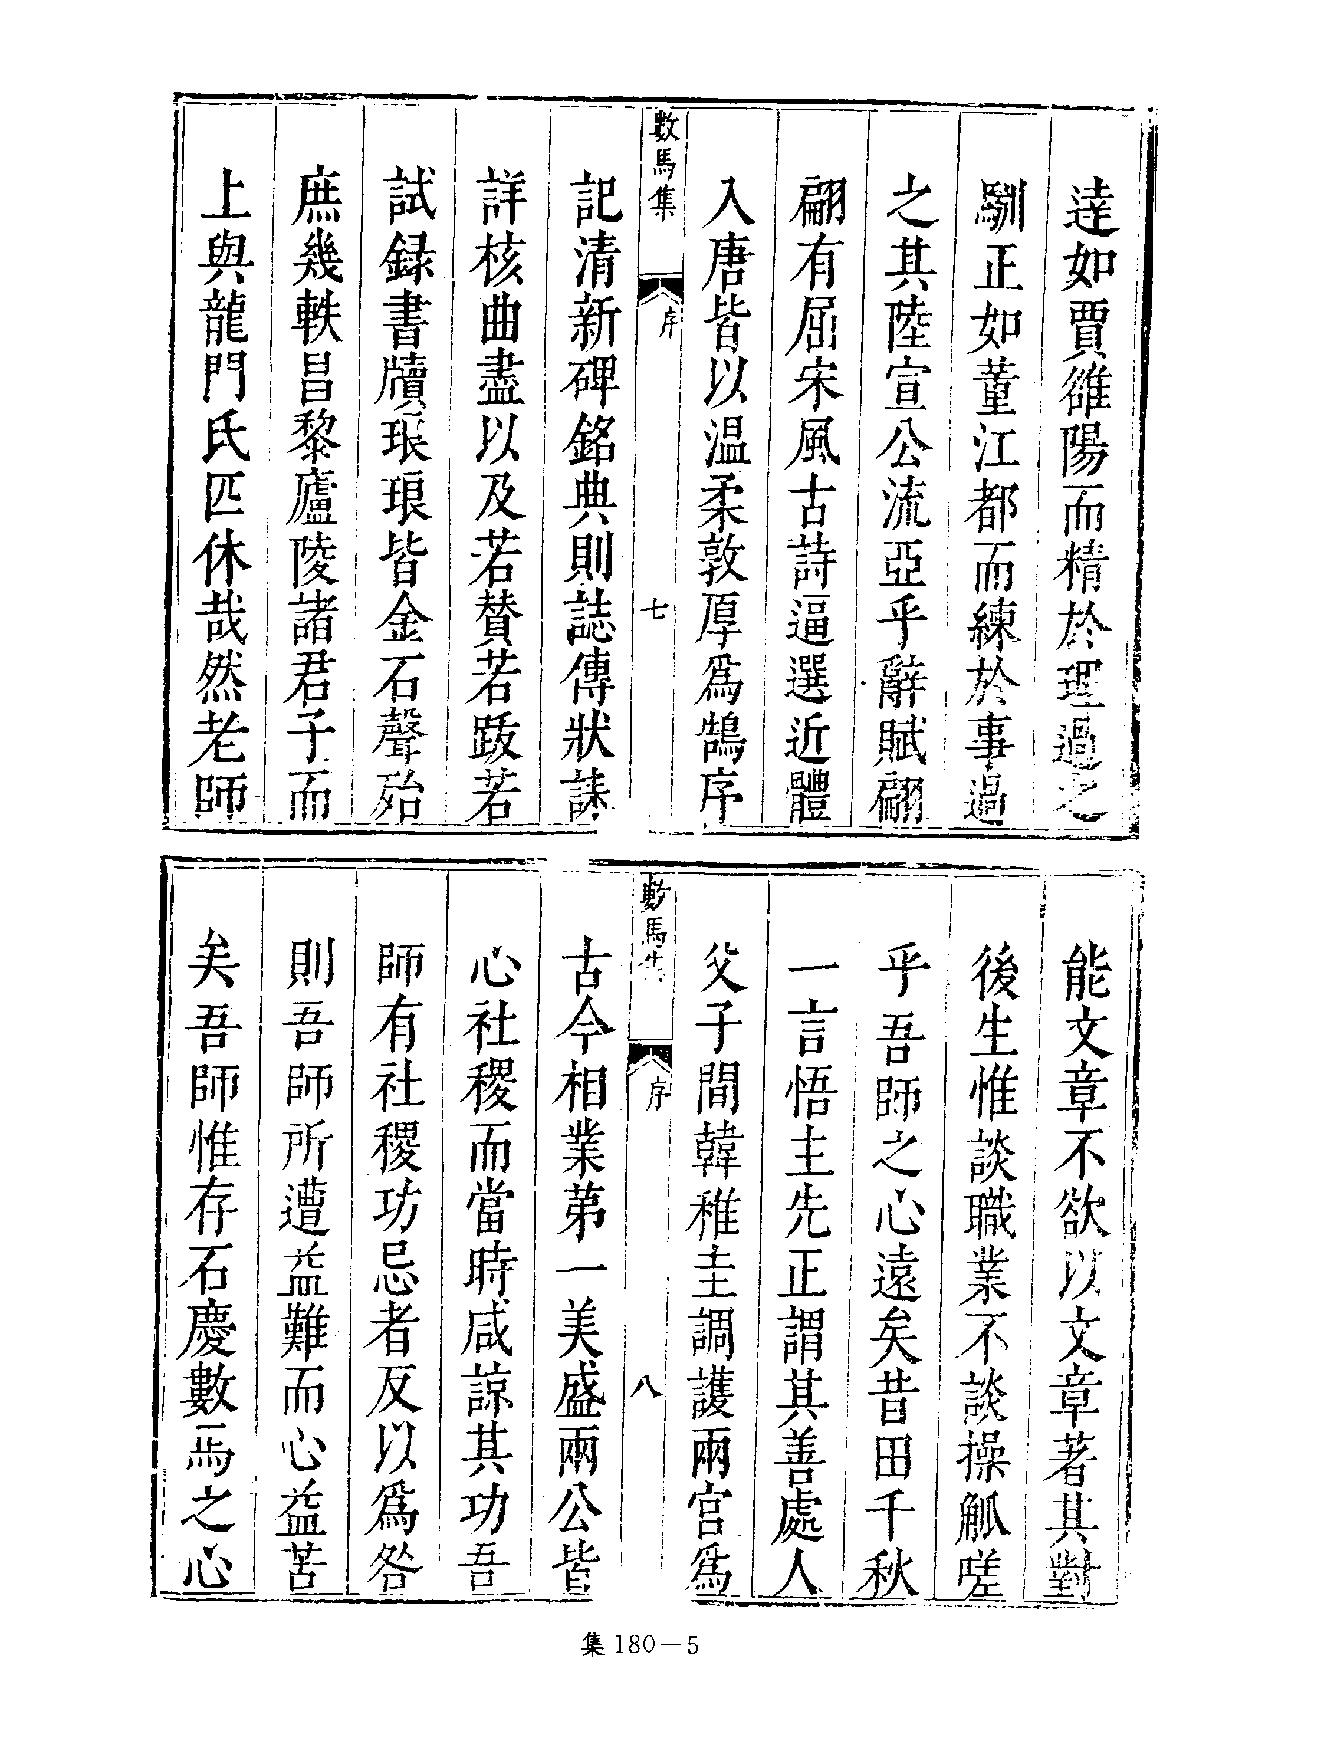 逹如賈雒陽而精於理過之
馴正如董江都而練於事過
之其陸宣公流亞乎辭賦翩
翩有屈宋風古詩逼選近體
入唐皆以温柔敦厚爲鵠序
數馬集
序
七
記清新碑銘典則誌傳狀誄
詳核曲盡以及若賛若跋若
試録書牘琅琅皆金石聲殆
庶幾軼昌黎廬陵諸君子而
上與龍門氏匹休哉然老師
能文章不欲以文章著其對
後生惟談職業不談操觚嗟
乎吾師之心遠矣昔田千秋
一言悟主先正謂其善處人
父子間韓稚圭調護兩宫爲
數馬集
序
八
古今相業第一美盛兩公皆
心社稷而當時咸諒其功吾
師有社稷功忌者反以爲咎
則吾師所遭益難而心益苦
矣吾師惟存石慶數馬之心
集180－5